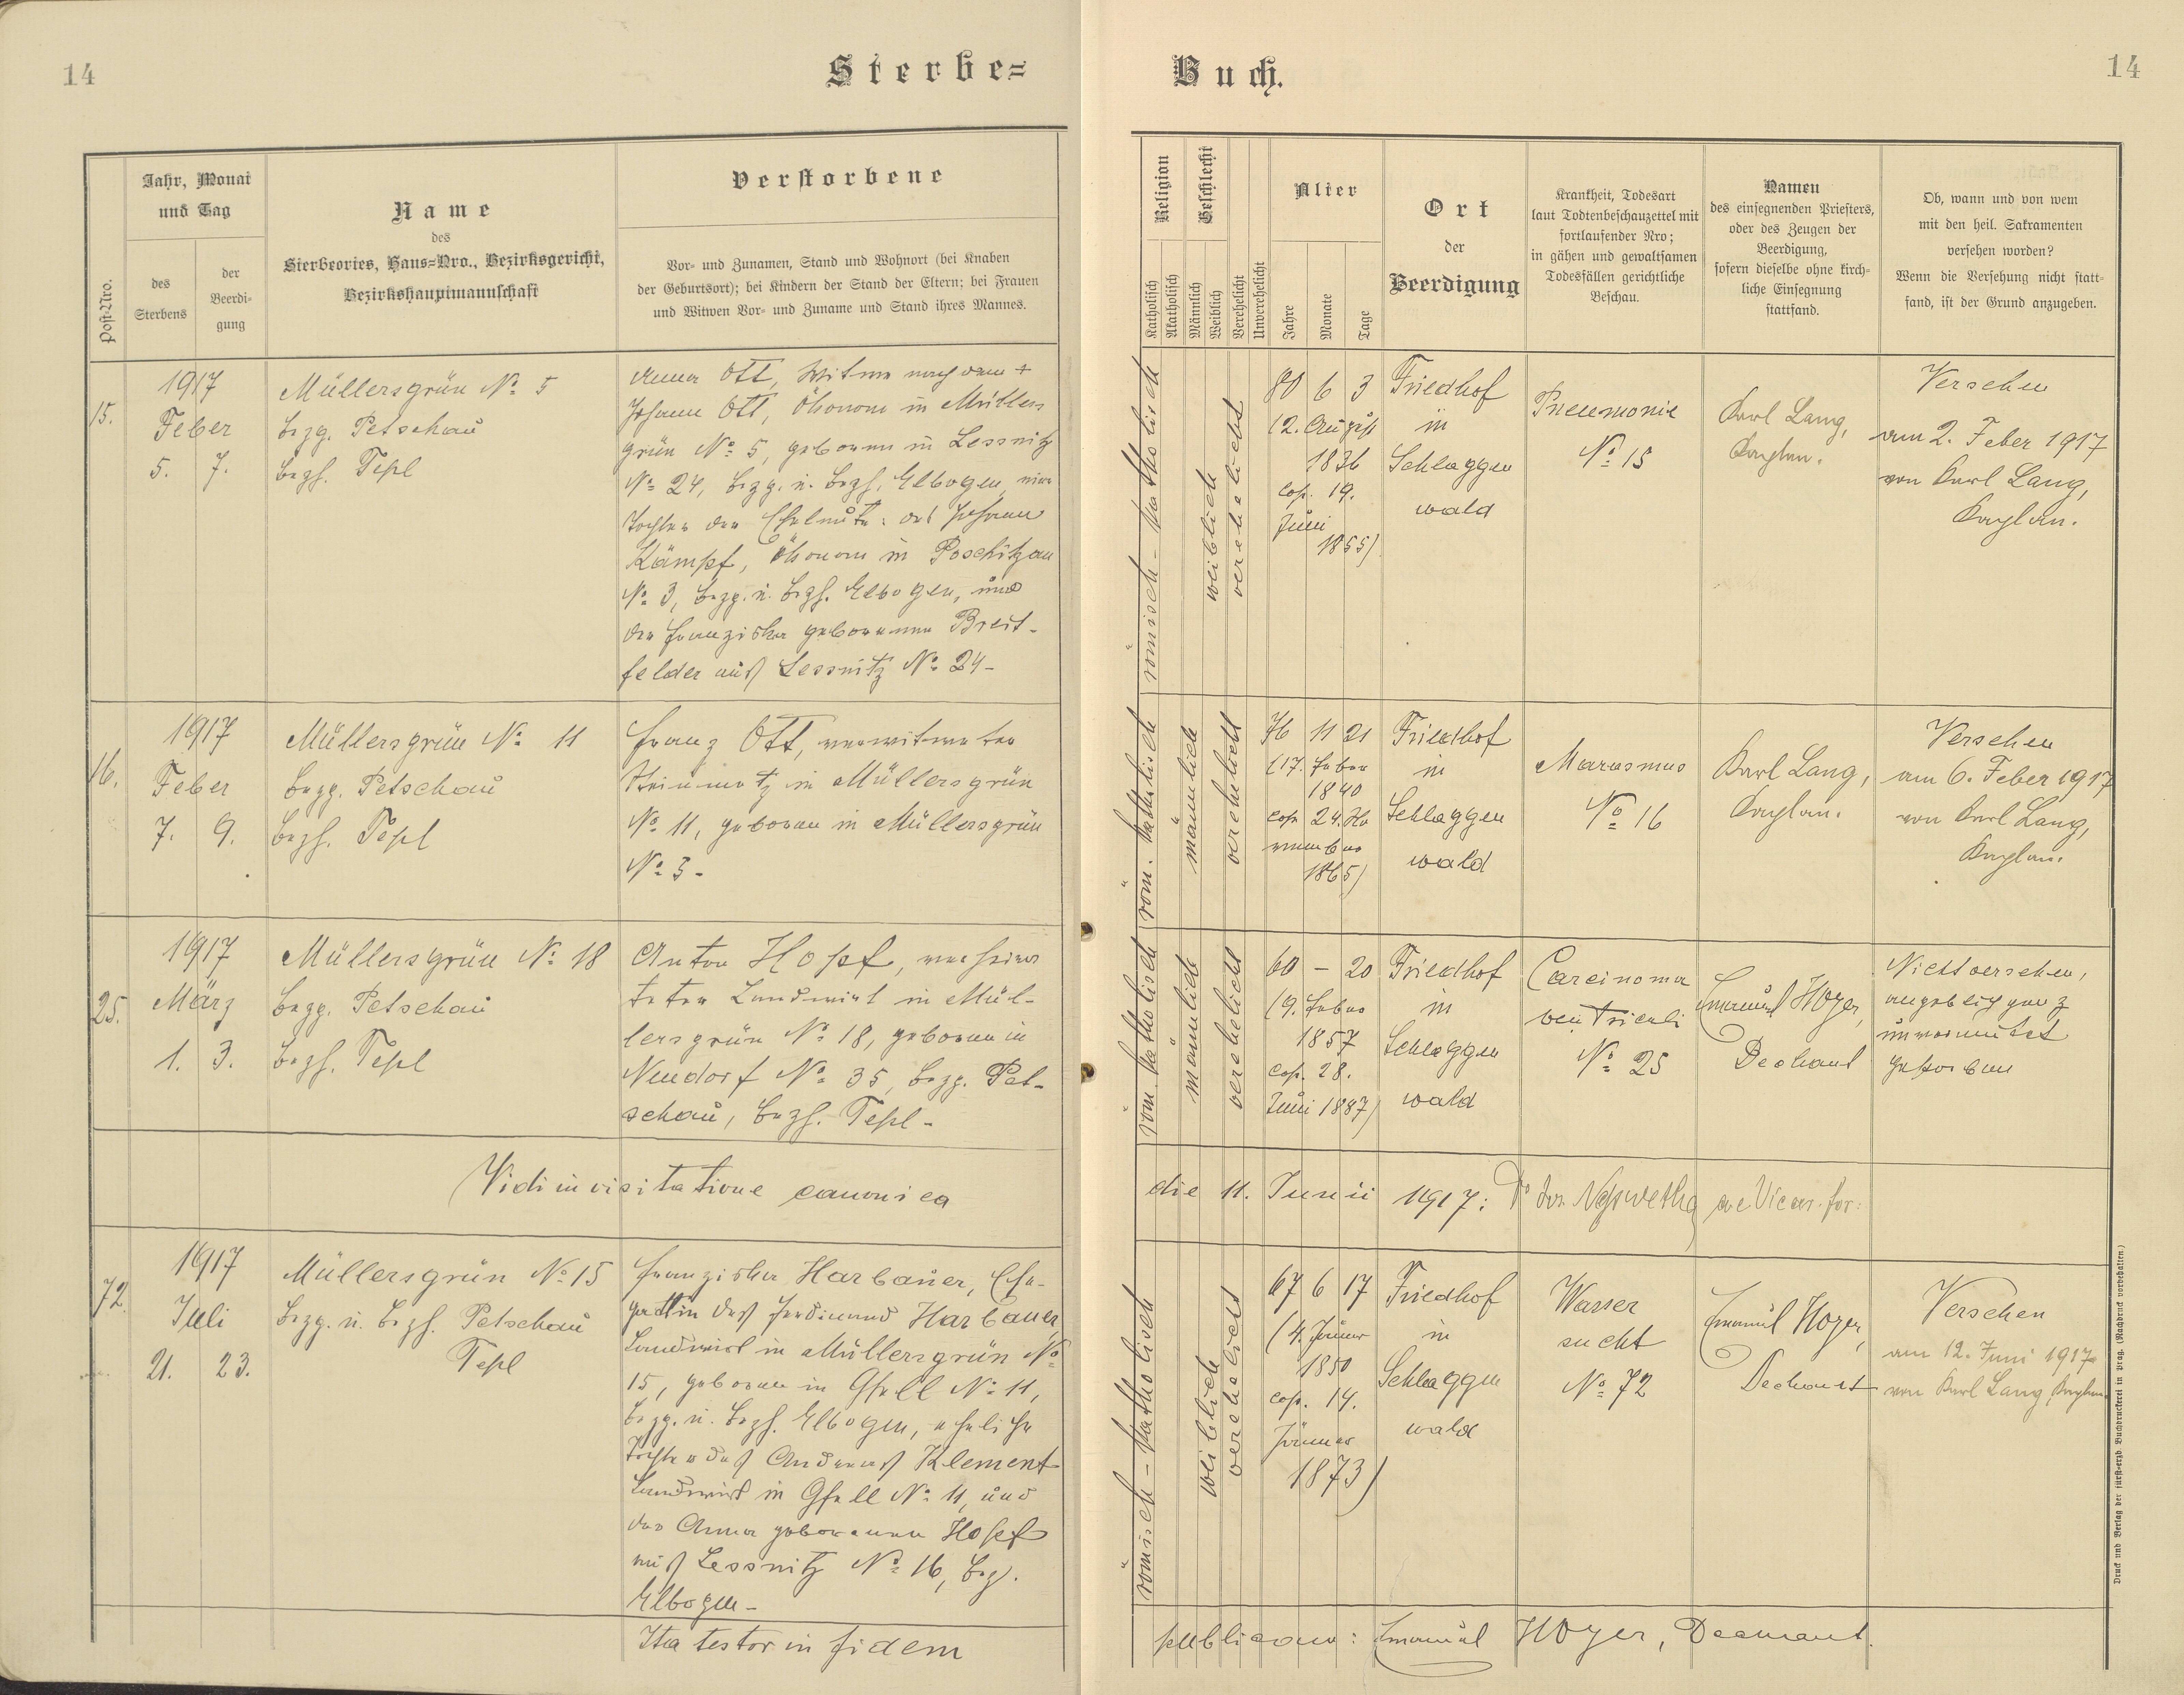 14
Sterbe=
Buch.
14
Post-Nro.
Jahr, Monat
und Tag
des
Sterbens
der
Beerdi-
gung
Name
des
Sterbeortes, Haus=Nro., Bezirksgericht,
Bezirkshauptmannschaft
Verstorbene
Vor- und Zunamen, Stand und Wohnort (bei Knaben
der Geburtsort); bei Kindern der Stand der Eltern; bei Frauen
und Witwen Vor- und Zuname und Stand ihres Mannes.
Religion
Katholisch
Akatholisch
Geschlecht
Männlich
Weiblich
Verehelicht
Unverehelicht
Alter
Jahre
Monate
Tage
Ort
der
Beerdigung
Krankheit, Todesart
laut Todtenbeschauzettel mit
fortlaufender Nro;
in gähen und gewaltsamen
Todesfällen gerichtliche
Beschau.
Namen
des einsegnenden Priesters,
oder des Zeugen der
Beerdigung,
sofern dieselbe ohne kirch-
liche Einsegnung
stattfand.
Ob, wann und von wem
mit den heil. Sakramenten
versehen worden?
Wenn die Versehung nicht statt-
fand, ist der Grund anzugeben.
15.
1917
Feber
5. 7.
Müllersgrün No 5
bzg. Petschau
bzh. Tepl
Anna Ott, Witwe nach dem +
Johann Ott, Ökonom in Müllers
grün No 5, geboren in Lessnitz
No 24, bzg. u. bzh. Elbogen, eine
Tochter der Eheleute: des Johann
Kämpf, Ökonom in Poschitzau
No 3, bzg. u. bzh. Elbogen, und
der Franziska geborenen Breit-
felder aus Lessnitz No 24-
römisch-katholisch
weiblich
verehelicht
80 6 3
(12. August
1836
cop. 19.
Juni
1855)
Friedhof
in
Schlaggen
wald
Pneumonie
No 15
Karl Lang,
Kaplan.
Versehen
am 2. Feber 1917
von Karl Lang,
Kaplan.
16.
1917
Feber
7. 9.
Müllersgrün No 11
bzg. Petschau
bzh. Tepl
Franz Ott, verwitweter
Steinmetz in Müllersgrün
No 11, geboren in Müllersgrün
No 3-
röm. katholisch
männlich
verehelicht
76 11 21
(17. Feber
1840
cop. 24. No
vember
1865)
Friedhof
in
Schlaggen
wald
Marasmus
No 16
Karl Lang,
Kaplan.
Versehen
am 6. Feber 1917
von Karl Lang,
Kaplan.
25.
1917
März
1. 3.
Müllersgrün No 18
bzg. Petschau
bzh. Tepl
Anton Hopf, verheira
teter Landwirt in Mül-
lersgrün No 18, geboren in
Neudorf No 35, bzg. Pet-
schau, bzh. Tepl-
röm. katholisch
männlich
verehelicht
60 - 20
(9. Feber
1857
cop. 28.
Juni 1887)
Friedhof
in
Schlaggen
wald
Carcinoma
ventriculi
No 25
Emanuel Hoyer,
Dechant
Nicht versehen,
angeblich ganz
unvermutet
gestorben
Vidi in visitatione canonica
die 11. Junii 1917: Dr Jos. ae Vicar. for:
72.
1917
Juli
21. 23.
Müllersgrün No 15
bzg. u. bzh. Petschau
Tepl
Franziska Harbauer, Ehe-
gattin des Ferdinand Harbauer,
Landwirt in Müllersgrün No
15, geboren in Gfell No 11,
bzg. u. bzh. Elbogen, eheliche
Tochter des Andreas Klement
Landwirt in Gfell No 11, und
der Anna geborenen Hopf
aus Lessnitz No 16, bzg.
Elbogen-
römisch-katholisch
weiblich
verehelicht
67 6 17
(4. Jänner
1850
cop. 14.
Jänner
1873)
Friedhof
in
Schlaggen
wald
Wasser
sucht
No 72
Emanuel Hoyer,
Dechant
Versehen
am 12. Juni 1917
von Karl Lang, Kaplan.
Ita testor in fidem
publicam: Emanuel Hoyer, Dechant.
Druck und Verlag der fürst=erzb. Buchdruckerei in Prag. (Nachdruck vorbehalten.)